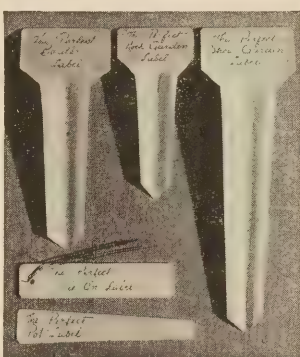 The Perfect
Label
The Perfect
Rock Garden
Label
The Perfect
Garden
Label
The Perfect
The Perfect
Pot Label